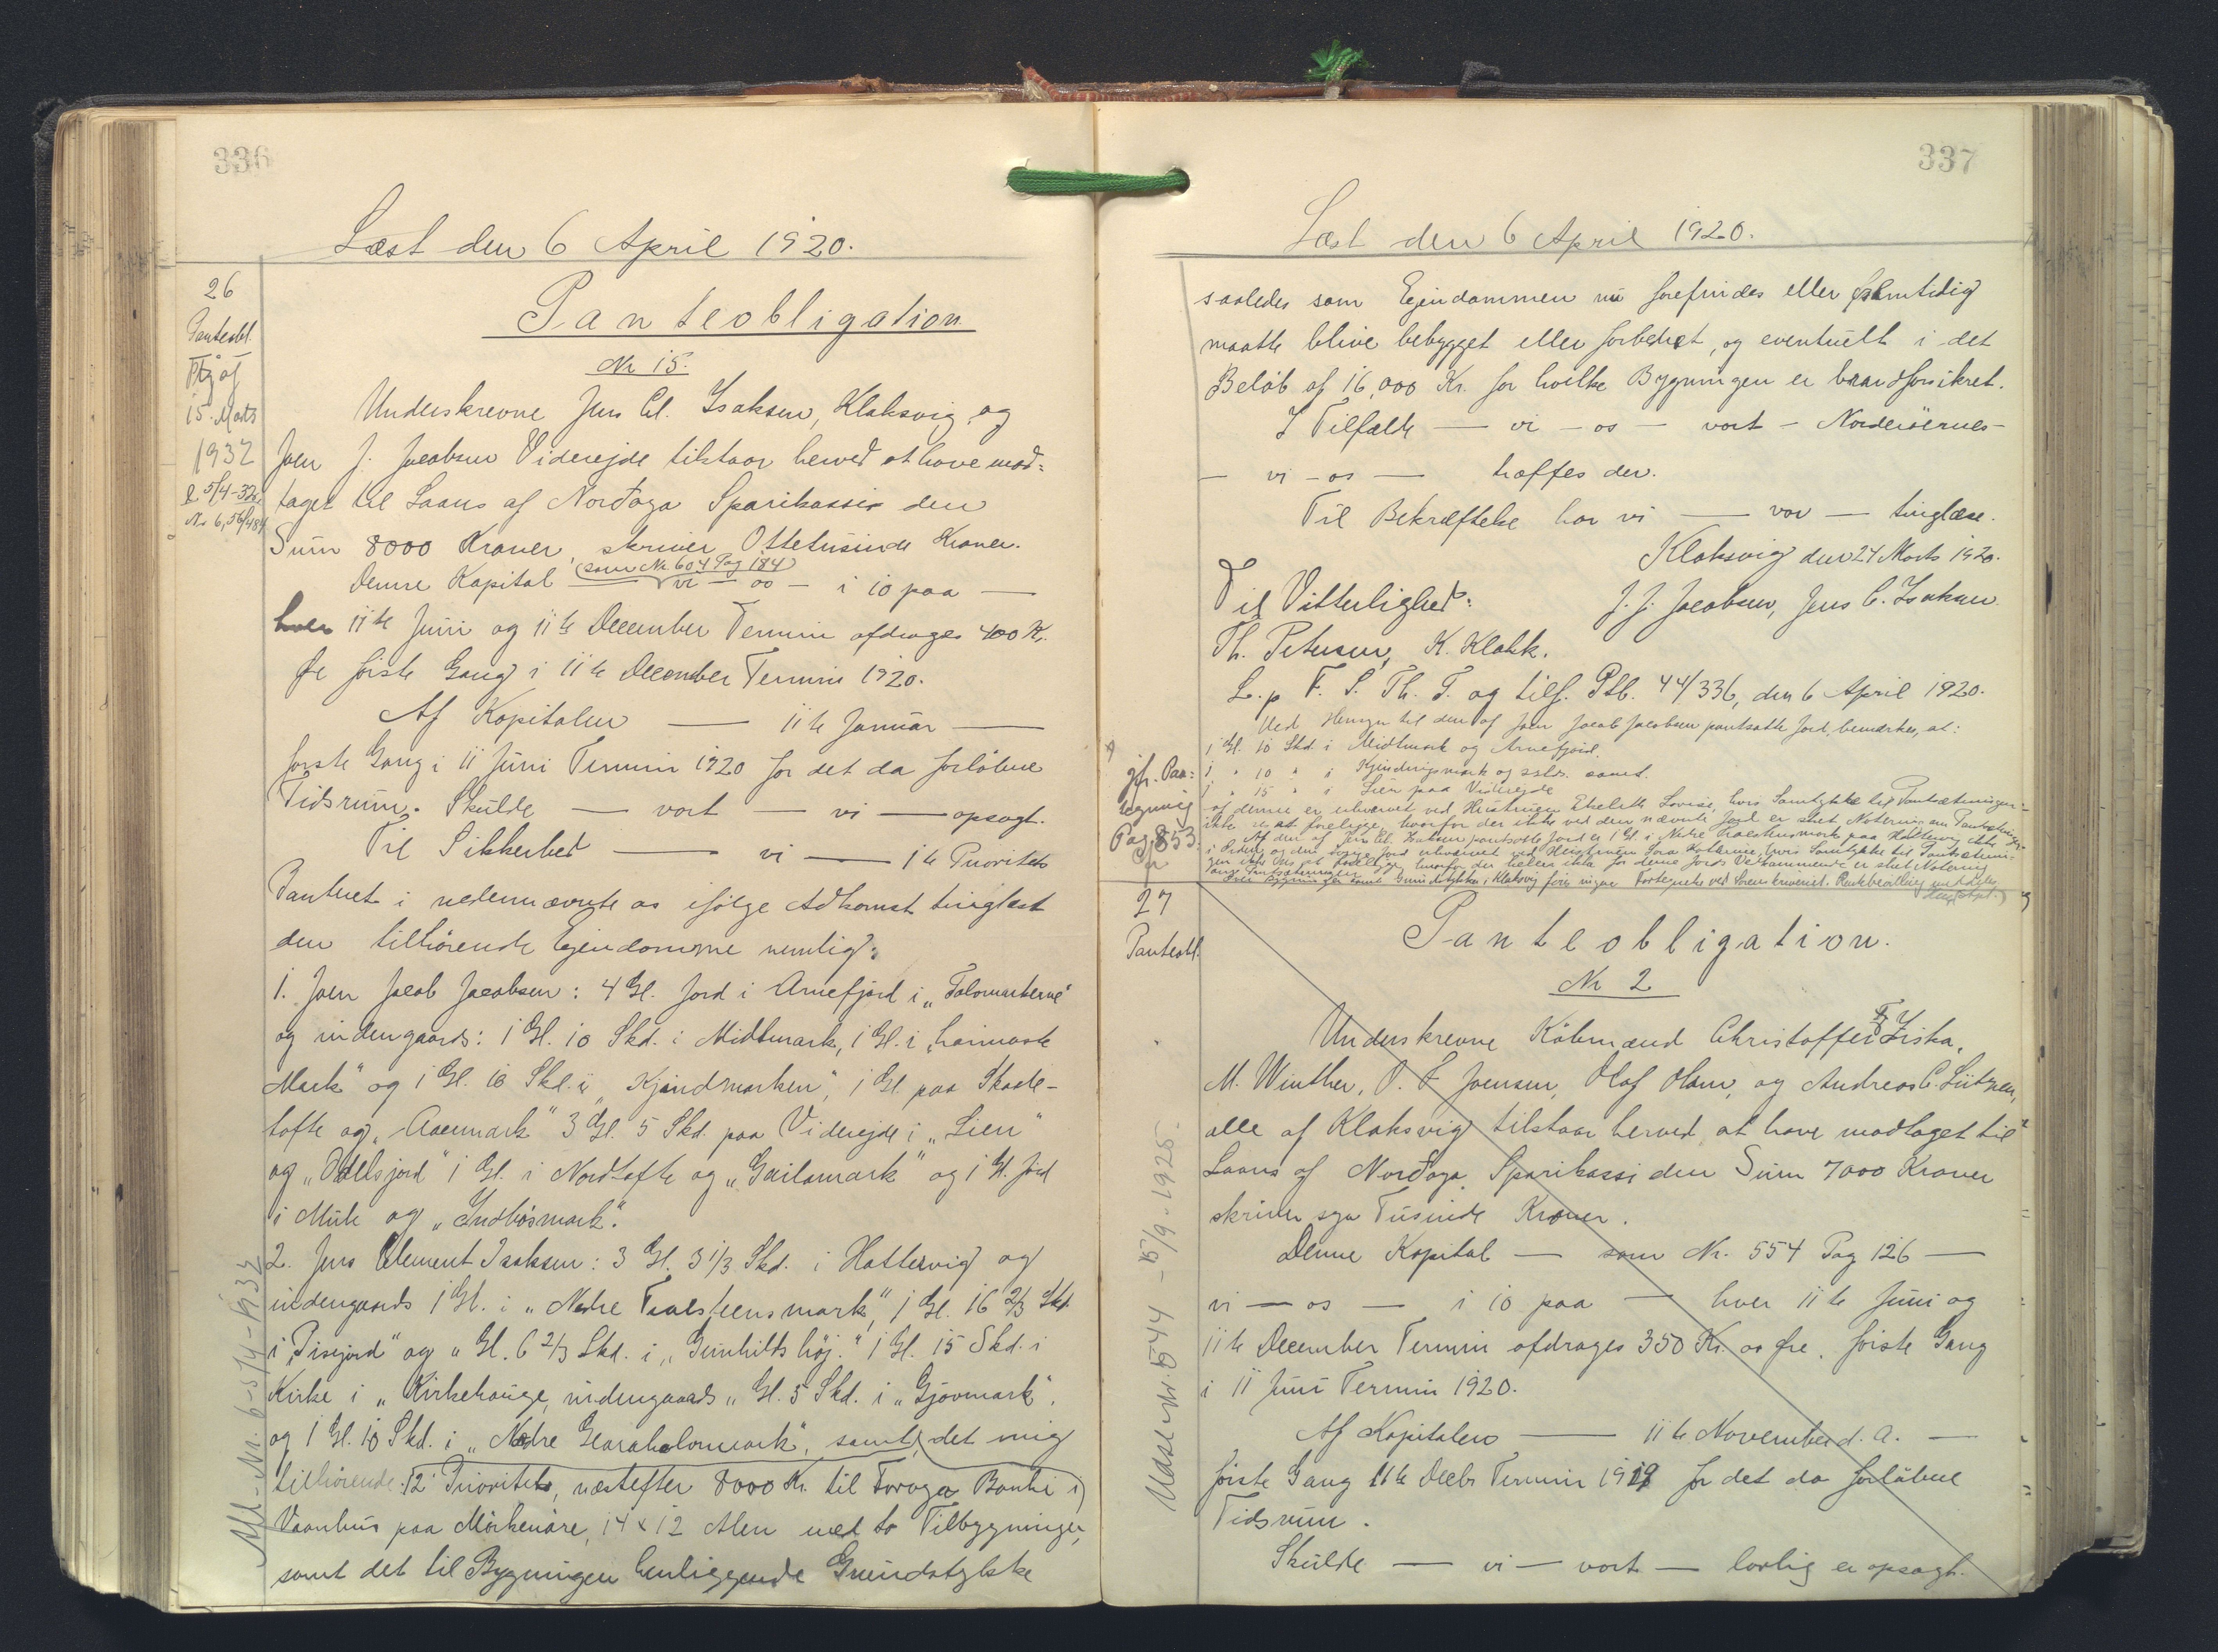 336
Læst den 6 April 1920.
26
Panteobl.
Ttg af
15. Marts
1932
l. 5/4-32,
Nr 6, 56/484
Panteobligation
Nr 15.
Underskrevne Jens Cl. Isaksen, Klaksvig, og
Joen J. Jacobsen Viderejde tilstaar herved at have mod=
taget til Laans af Norðoya Sparikassi den
Sum 8000 Kroner, skriver Ottetusinde Kroner.
Denne Kapital (som Nr 604 Pag 184) — vi — os — i 10 paa —
hver 11te Juni og 11te December Termin afdrages 400 Kr.
Øre første Gang i 11te December Termin 1920.
Af Kapitalen — 11te Januar —
første Gang i 11 Juni Termin 1920 for det da forløbne
Tidsrum. Skulde — vort — vi — opsagt.
Til Sikkerhed — vi — 1ste Prioritets
Panteret i nedennævnte os ifølge Adkomst tinglæst
den tilhørende Ejendomme nemlig:
1. Joen Jacob Jacobsen: 4 Gl. Jord i Arnefjord i „Tolomarkerne"
og indengaards: 1 Gl. 10 Skd. i Midtmark, 1 Gl. i „hanimaste
Mark" og 1 Gl. 10 Skd. i „Kjindmarken", 1 Gl. paa Skaale-
tofte og „Aaenmark" 3 Gl. 5 Skd. paa Viderejde i „Lien"
og „Odelsjord" 1 Gl. i Nordtofte og „Gailamark" og 1 Gl. Jord
i Mule og „Indhøsmark".
2. Jens Clement Isaksen: 3 Gl. 3 1/3 Skd. i Hattervig og
indengaards 1 Gl. i „Nedre Traelsteensmark", 1 Gl. 16 2/3 Skd
i „Pisejord" og „ Gl. 6 2/3 Skd. i „Gunhilds høj." 1 Gl. 15 Skd. i
Kirke i „Kirkehauge, indengaards „ Gl. 5 Skd. i „Gjovmark",
og 1 Gl. 10 Skd. i „Nedre Gearaholomark", samt (det mig
tilhørende: 12' Prioritets, næstefter 8000 Kr. til Foroya Banki i)
Vaanhus paa Mörkenøre, 14 x 12 Alen med to Tilbygninger,
samt det til Bygningen henliggende Grundstykke
Afl - Nr. 6 - 5/4 - 1932
337
Læst den 6 April 1920.
saaledes som Ejendommen nu forefindes eller fremtidig
maatte blive bebygget eller forbedret, og eventuelt i det
Beløb af 16,000 Kr. for hvilke Bygningen er brandforsikret.
I Tilfælde — vi — os — vort — Norderøernes —
— vi — os — træffes der.
Til Bekræftelse har vi — vor — tinglæse.
Klaksvig den 24 Marts 1920.
Til Vitterlighed: J. J. Jacobsen, Jens C. Isaksen
Th. Petersen, K. Klakk.
L. p. F. S. Th. T. og tilf. Ptb. 44/336, den 6 April 1920.
Ved Hensyn til den af Joen Jacob Jacobsen pantsatte Jord, bemærkes, at:
1 Gl. 10 Skd. i Midtmark og Arnefjord.
1 „ 10 „ i Kjindingsmark og sstds. samt.
1 „ 15 „ i Lien paa Viderejde
af denne er erhvervet ved Hustruen Elsebeth Lovise, hvis Samtykke til Pantsætningen
ikke er at foreligge, hvorfor der ikke ved den nævnte Jord er sket Notering om Pantsætningen.
Af den af Jens Cl. Isaksen pantsatte Jord er 1 Gl i Nedre Traelsteensmark paa Hattervig
jfr. Paa=
tegning
Pag. 853
27
Panteobl.
Panteobligation.
Nr 2
Underskrevne Købmænd Christoffer F. Ziska,
M. Winther, O. F. Joensen, Olaf Olsen, og Andreas C. Lützen,
alle af Klaksvig tilstaar herved, at have modtaget til
Laans af Norðoya Sparikassi den Sum 7000 Kroner
skriver syv Tusinde Kroner.
Denne Kapital — som Nr. 554 Pag 126 —
vi — os — i 10 paa — hver 11te Juni og
11te December Termin afdrages 350 Kr. oo Øre, første Gang
i 11 Juni Termin 1920.
Af Kapitalen — 11te November d. A. —
første Gang 11te Decbr Termin 1919 for det da forløbne
Tidsrum.
Skulde — vi — vort — lovlig er opsagt.
Udsl. Nr. 544 - 15/9. 1925.